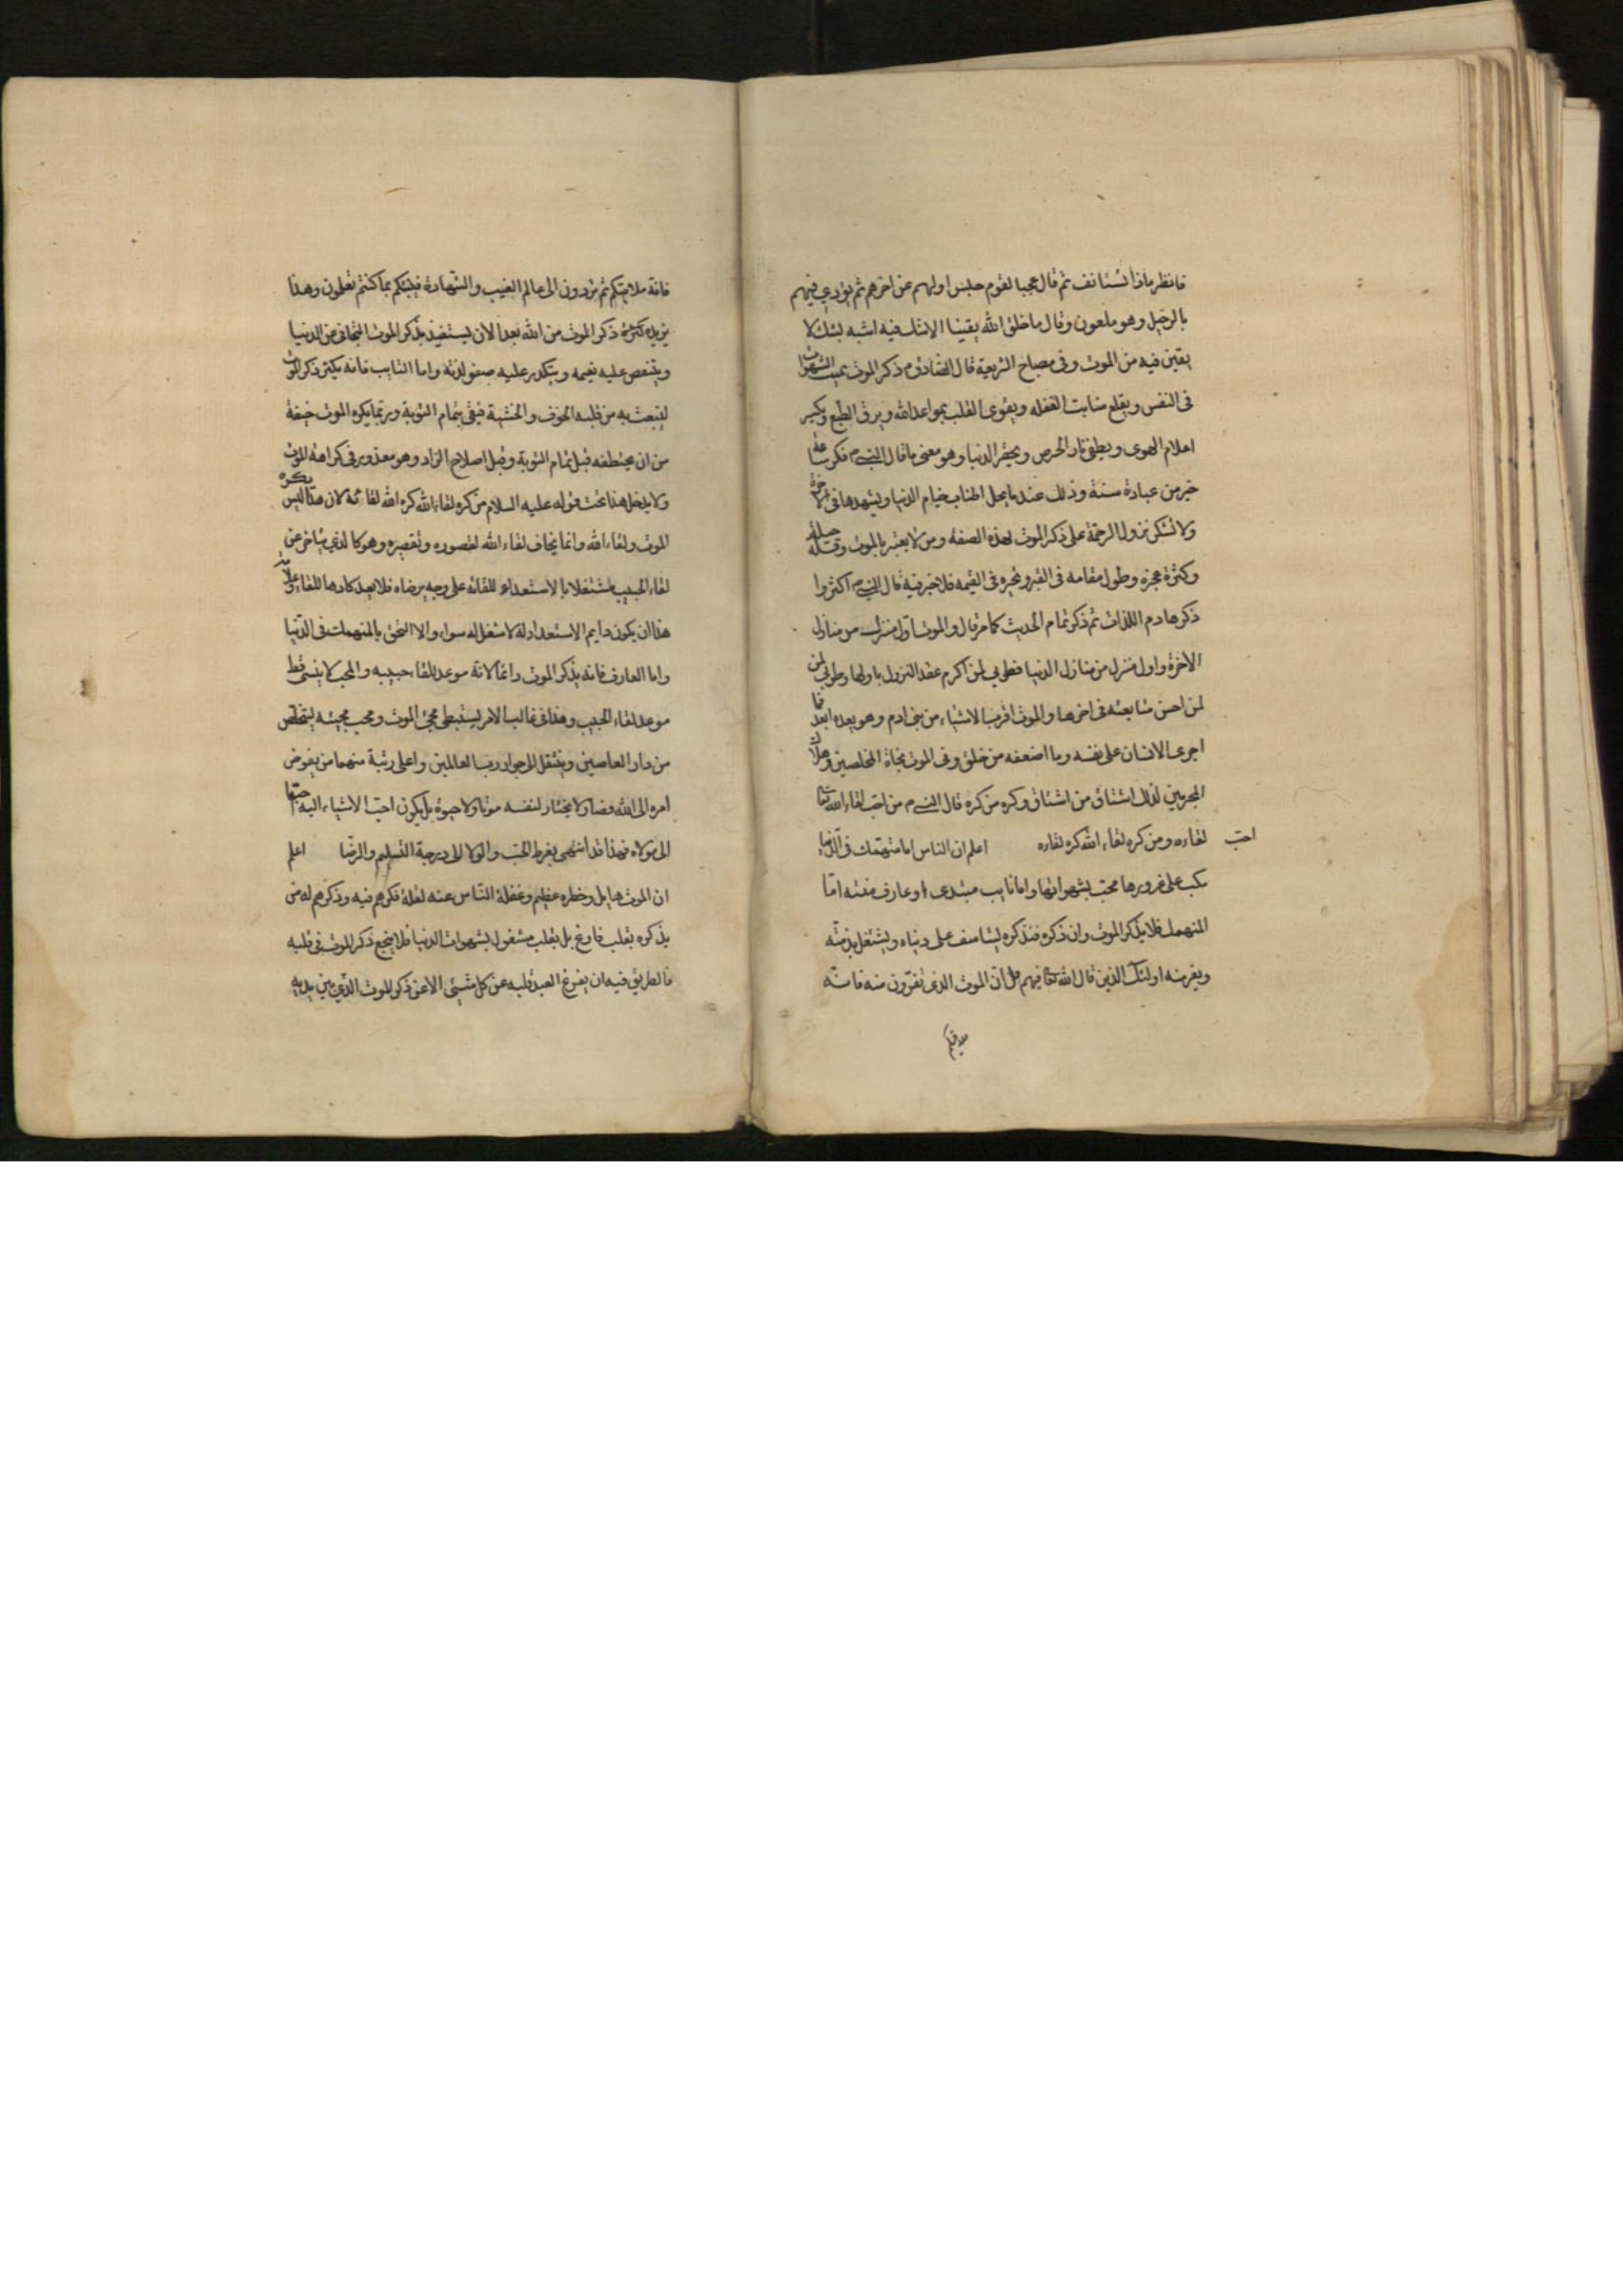 فانظر ماذا تستانف ثم قال عجبا لقوم حبس اولهم عن اخرهم ثم نودي فيهم
بالرحيل وهو ملعبون وقال ما خلق الله يقينا لا شك فيه اشبه بشك لا
يقين فيه من الموت وفى مصباح الشريعة قال الصادق م ذكر الموت يميت الشهوات
فى النفس ويقلع منابت الغفله ويقوى القلب بمواعد الله ويرق الطبع ويكسر
اعلام الهوى ويطفى نار الحرص ويحقر الدنيا وهو معنى ما قال النبى م فكر ساعة
خير من عبادة سنة وذلك عند ما يحل اطناب خيام الدنيا ويشهدها فى الاخرة
ولا تشكن نزول الرحمة على ذكر الموت بهذه الصفه ومن لا يعتبر بالموت وقلة حيلته
وكثرة عجزه وطول مقامه فى القبر وتحيره فى القيمه فلا خير فيه قال النبى م اكثروا
ذكر هادم اللذات ثم ذكر تمام الحديث كما مر قال والموت اول منزل من منازل
الاخرة واول منزل من منازل الدنيا فطوبى لمن اكرم عند النزول باولها وطوبى لمن
لمن احسن مشايعته فى اخرها والموت اقرب الاشياء من بنى ادم وهو يعده ابعد فما
اجرى الانسان على نفسه وما اضعفه من خلق وفى الموت نجاة المخلصين وهلاك
المجرمين لذلك اشتاق من اشتاق وكره من كره قال النبى م من احب لقاء الله تعالى
احب لقاءه ومن كره لقاء الله كره لقاءه اعلم ان الناس اما منهمك فى الدنيا
مكب على غرورها محب لشهواتها واما تايب مبتدى او عارف منته اما
المنهمك فلا يذكر الموت وان ذكره فيذكره ليتاسف على دنياه ويشتغل بذمته
ويفر منه اولئك الذين قال الله تعالى فيهم قل ان الموت الذى تفرون منه فانه
ملاقيكم
فانه ملاقيكم ثم تردون الى عالم الغيب والشهادة فينبئكم بما كنتم تعملون وهذا
يزيده كثرة ذكر الموت من الله بعدا الا ان يستفيد بذكر الموت التجافى عن الدنيا
ويتنغص عليه نعيمه ويتكدر عليه صفو لذته واما التايب فانه يكثر ذكر الموت
لينبعث به من قلبه الخوف والخشية فيفى بتمام التوبة وربما يكره الموت خيفة
من ان يختطفه قبل تمام التوبة وقبل اصلاح الزاد وهو معذور فى كراهة الموت
ولا يدخل هذا تحت قوله عليه السلام من كره لقاء الله كره الله لقائه لان هذا ليس يكره
الموت ولقاء الله وانما يخاف لقاء الله لقصوره وتقصيره وهو كالذي يتاخر عن
لقاء الحبيب مشتغلا بالاستعداد للقائه على وجه يرضاه فلا يعد كارها للقاء وعلامة
هذا ان يكون دايم الاستعداد له لا شغل له سواه والا التحق بالمنهمك فى الدنيا
واما العارف فانه يذكر الموت دائما لانه موعد للقاء حبيبه والمحب لا ينسى قط
موعد لقاء الحبيب وهذا فى غالب الامر يستبطى مجئ الموت ويحب مجيئه ليتخلص
من دار العاصين وينتقل الى جوار رب العالمين واعلى رتبة منهما من يفوض
امره الى الله فصار لا يختار لنفسه موتا ولا حيوة بل يكون احب الاشياء اليه احبها
الى مولاه فهذا قد انتهى بفرط الحب والولا الى درجة التسليم والرضا اعلم
ان الموت هايل وخطره عظيم وغفلة الناس عنه لقلة فكرهم فيه وذكرهم له من
يذكره بقلب فارغ بل بقلب مشغول بشهوات الدنيا فلا ينجع ذكر الموت فى قلبه
فالطريق فيه ان يفرغ العبد قلبه عن كل شيئ الا عن ذكر الموت الذي بين يديه